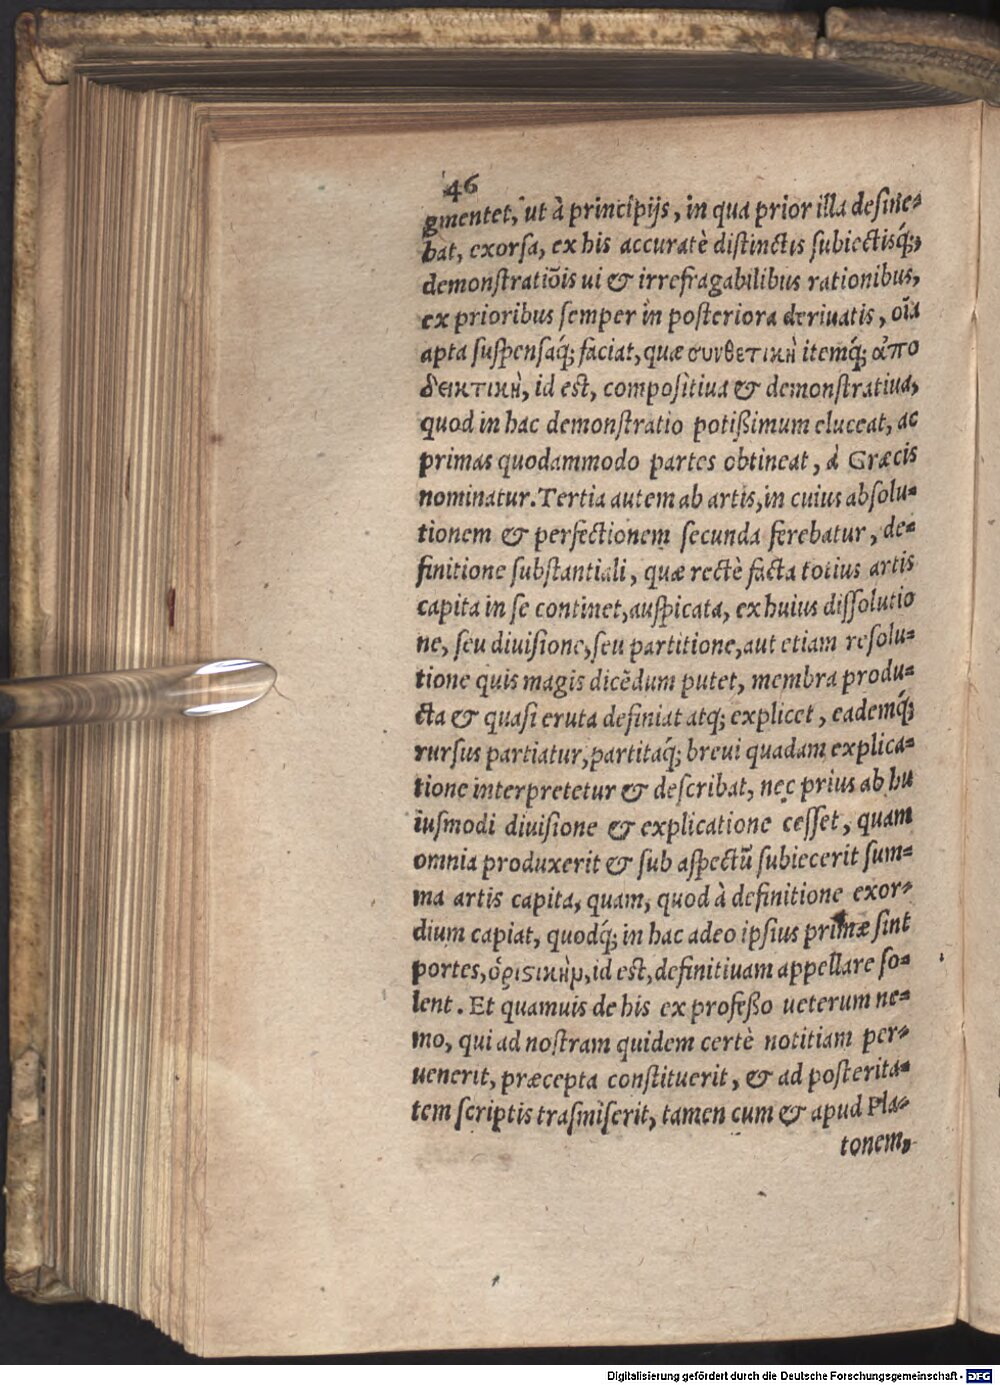 46
gmentet, ut à principijs, in qua prior illa desine-
bat, exorsa, ex his accuratè distinctis subiectisq́;,
demonstratiōis ui & irrefragabilibus rationibus,
ex prioribus semper in posteriora deriuatis, oīa
apta suspensaq́; faciat, quæ συνθετικὴ itemq́; ἀπο
δεικτικὴ, id est, compositiua & demonstratiua,
quod in hac demonstratio potißimum eluceat, ac
primas quodammodo partes obtineat, à Græcis
nominatur. Tertia autem ab artis, in cuius absolu-
tionem & perfectionem secunda ferebatur, de-
finitione substantiali, quæ rectè facta totius artis
capita in se continet, auspicata, ex huius dissolutio
ne, seu diuisione, seu partitione, aut etiam resolu-
tione quis magis dicēdum putet, membra produ-
cta & quasi eruta definiat atq; explicet, eademq́;
rursus partiatur, partitaq́; breui quadam explica-
tione interpretetur & describat, nec prius ab hu
iusmodi diuisione & explicatione cesset, quam
omnia produxerit & sub aspectū subiecerit sum-
ma artis capita, quam, quod à definitione exor-
dium capiat, quodq́; in hac adeo ipsius primæ sint
portes, ὁριστικὴν, id est, definitiuam appellare so-
lent. Et quamuis de his ex profeßo ueterum ne-
mo, qui ad nostram quidem certè notitiam per-
uenerit, præcepta constituerit, & ad posterita-
tem scriptis trasmiserit, tamen cum & apud Pla-
tonem,
Digitalisierung gefördert durch die Deutsche Forschungsgemeinschaft - DFG